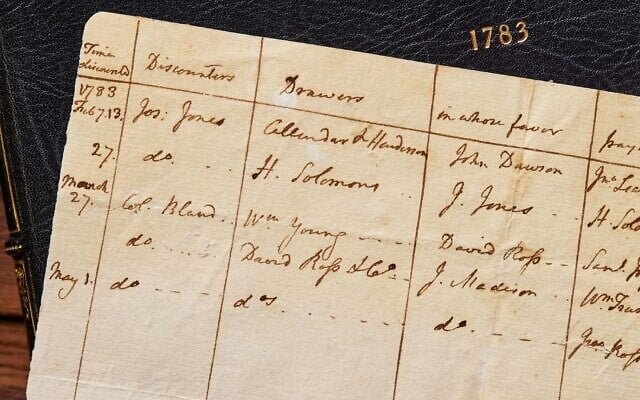 1783
Time discounted Discounters Drawers in whose favor
1783
Feb 7.13. Jos: Jones Callendar & Henderson John Dawson
27. do. . . H. Solomons . . J. Jones . . H. Solo
March 27. Col. Bland . . Wm Young - - - - David Roſs - - Saml. J
do. . . . . David Roſs & Co. - - J. Madison . .
May 1. do - - - - dos. . . . . . . do. - - - - Roſs